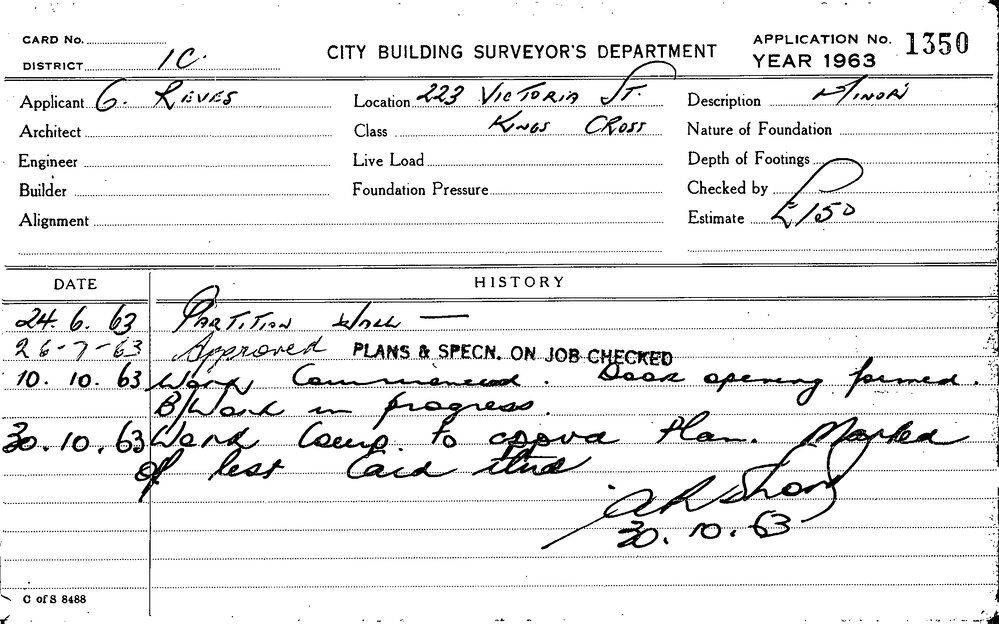 CARD No.
DISTRICT 1C.
CITY BUILDING SURVEYOR'S DEPARTMENT
APPLICATION No. 1350
YEAR 1963
Applicant G. REVES
Location 223 VICTORIA ST.
Description MINOR
Architect
Class KINGS CROSS
Nature of Foundation
Engineer
Live Load
Depth of Footings
Builder
Foundation Pressure
Checked by
Alignment
Estimate £150
DATE HISTORY
24. 6. 63 PARTITION WALL —
26-7-63 Approved PLANS & SPECN. ON JOB CHECKED
10. 10. 63 Work Commenced. Door opening formed.
B/Work in progress.
30. 10. 63 Work Comp. to approvd Plan. Marked
of last Card
30. 10. 63
C of S 8488